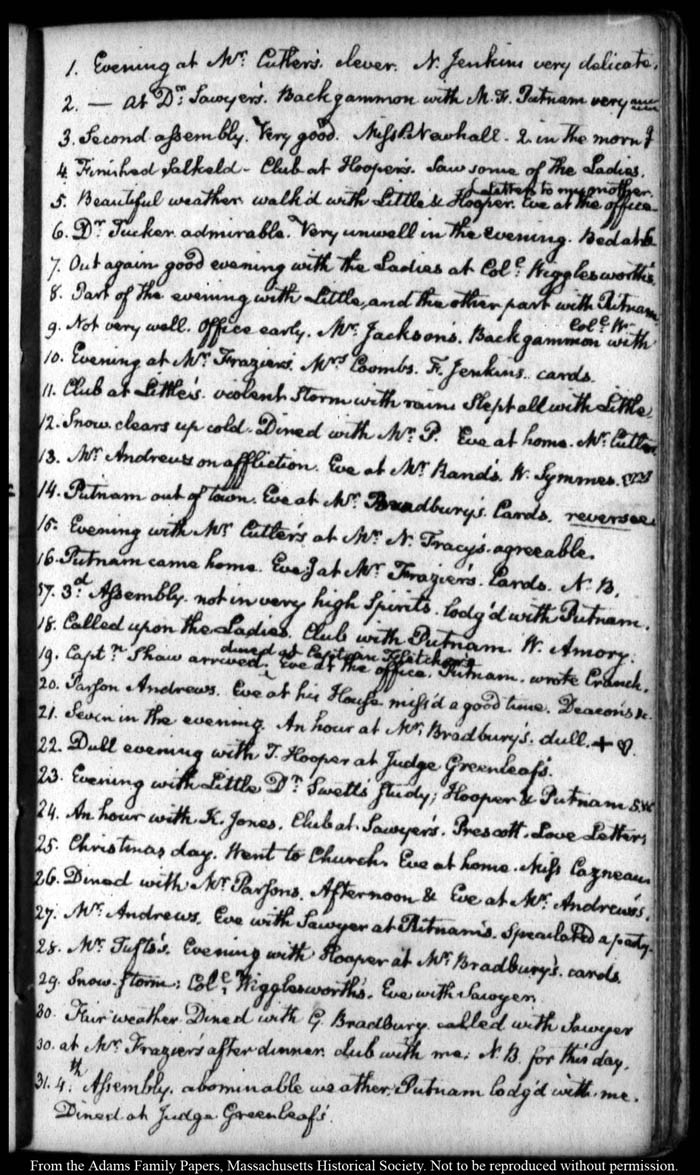 1. Evening at Mrs. Cutler's. clever. N. Jenkins very delicate.
2. — At Dr. Sawyer's. Backgammon with M. F. Putnam very
3. Second assembly. Very good. Miss Newhall. 2. in the morng
4. Finished Salkeld - Club at Hooper's. Saw some of the Ladies.
Letters to my mother.
5. Beautiful weather walk'd with Little & Hooper. Eve at the office.
6. Dr. Tucker admirable. Very unwell in the evening. Bed at
7. Out again good evening with the Ladies at Coll. Wigglesworth's.
8. Part of the evening with Little, and the other part with Putnam
Coll. W—
9. Not very well. Office early. Mr. Jackson's. Backgammon with
10. Evening at Mr. Frazier's. Mrs Coombs. F. Jenkins. cards.
11. Club at Little's. violent Storm with rain. Slept all with Little.
12. Snow. clears up cold. Dined with Mr. P. Eve at home. Mr. Cutler
13. Mr. Andrews on affliction. Eve at Mr. Rand's. W. Symmes.
14. Putnam out of town. Eve at Mr. Bradbury's. Cards. reversee.
15. Evening with Mr. Cutler's at Mr. N. Tracy's. agreeable.
16. Putnam came home. Eveg at Mr. Frazier's. Cards. N. B.
17. 3d. Assembly. not in very high Spirits. lodg'd with Putnam.
18. Called upon the Ladies. Club with Putnam. W. Amory.
dined at Captain Fletcher's
19. Captn. Shaw arrived. Eve at the office. Putnam. wrote Cranch.
20. Parson Andrews. Eve at his House. miss'd a good time. Deacon's &c.
21. Seven in the evening. An hour at Mr. Bradbury's. dull. + ♡.
22. Dull evening with T. Hooper at Judge Greenleaf's.
23. Evening with Little Dr. Swett's study; Hooper & Putnam
24. An hour with K. Jones. Club at Sawyer's. Prescott. Love Letters
25. Christmas day. Went to Church. Eve at home. Miss Cazneau
26. Dined with Mr. Parsons. Afternoon & Eve at Mr. Andrews's.
27. Mr. Andrews. Eve with Sawyer at Putnam's. Speculated a party.
28. Mr. Tufts's. Evening with Hooper at Mr. Bradbury's. cards.
29. Snow-storm: Coll. Wigglesworth's. Eve with Sawyer.
30. Fair weather. Dined with G. Bradbury. called with Sawyer
30. at Mr. Frazier's after dinner. club with me: N. B. for this day.
31. 4th. Assembly. abominable weather. Putnam lodg'd with me.
Dined at Judge Greenleaf's.
From the Adams Family Papers, Massachusetts Historical Society. Not to be reproduced without permission.